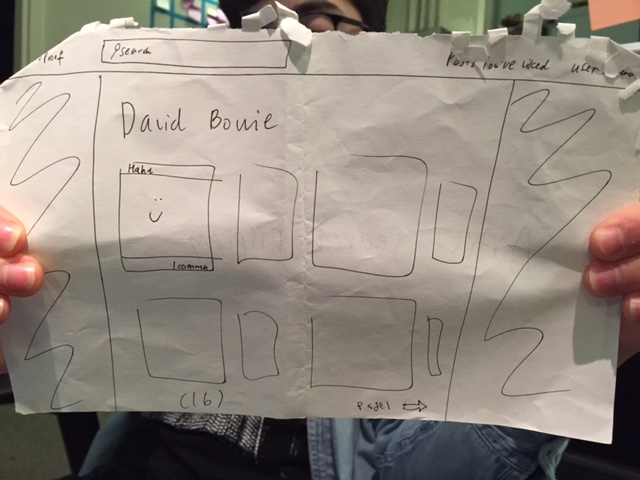 search
Posts You've liked user
David Bowie
Haha
1 comment
(16)
page 1